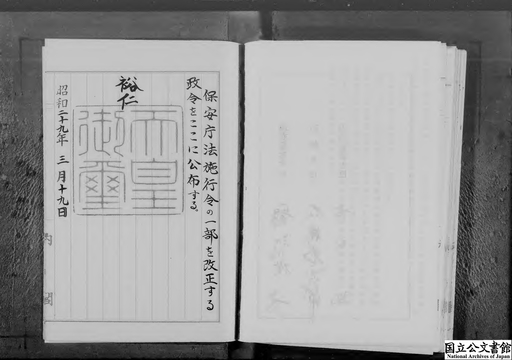 保安庁法施行令の一部を改正する
政令をここに公布する。
裕仁
天皇
御璽
昭和二十九年三月十九日
内閣
国立公文書館
National Archives of Japan